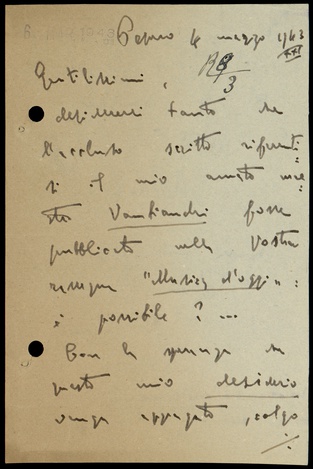 Pesaro 4 marzo 1943
XXI
R 8/3
Gentilissimi,
desidererei tanto che
l'accluso scritto riferenti-
si al mio amato mae-
stro Vanbianchi fosse
pubblicato nella Vostra
rassegna "Musica d'oggi":
è possibile? ...
Con la speranza che
questo mio desiderio
venga appagato, colgo